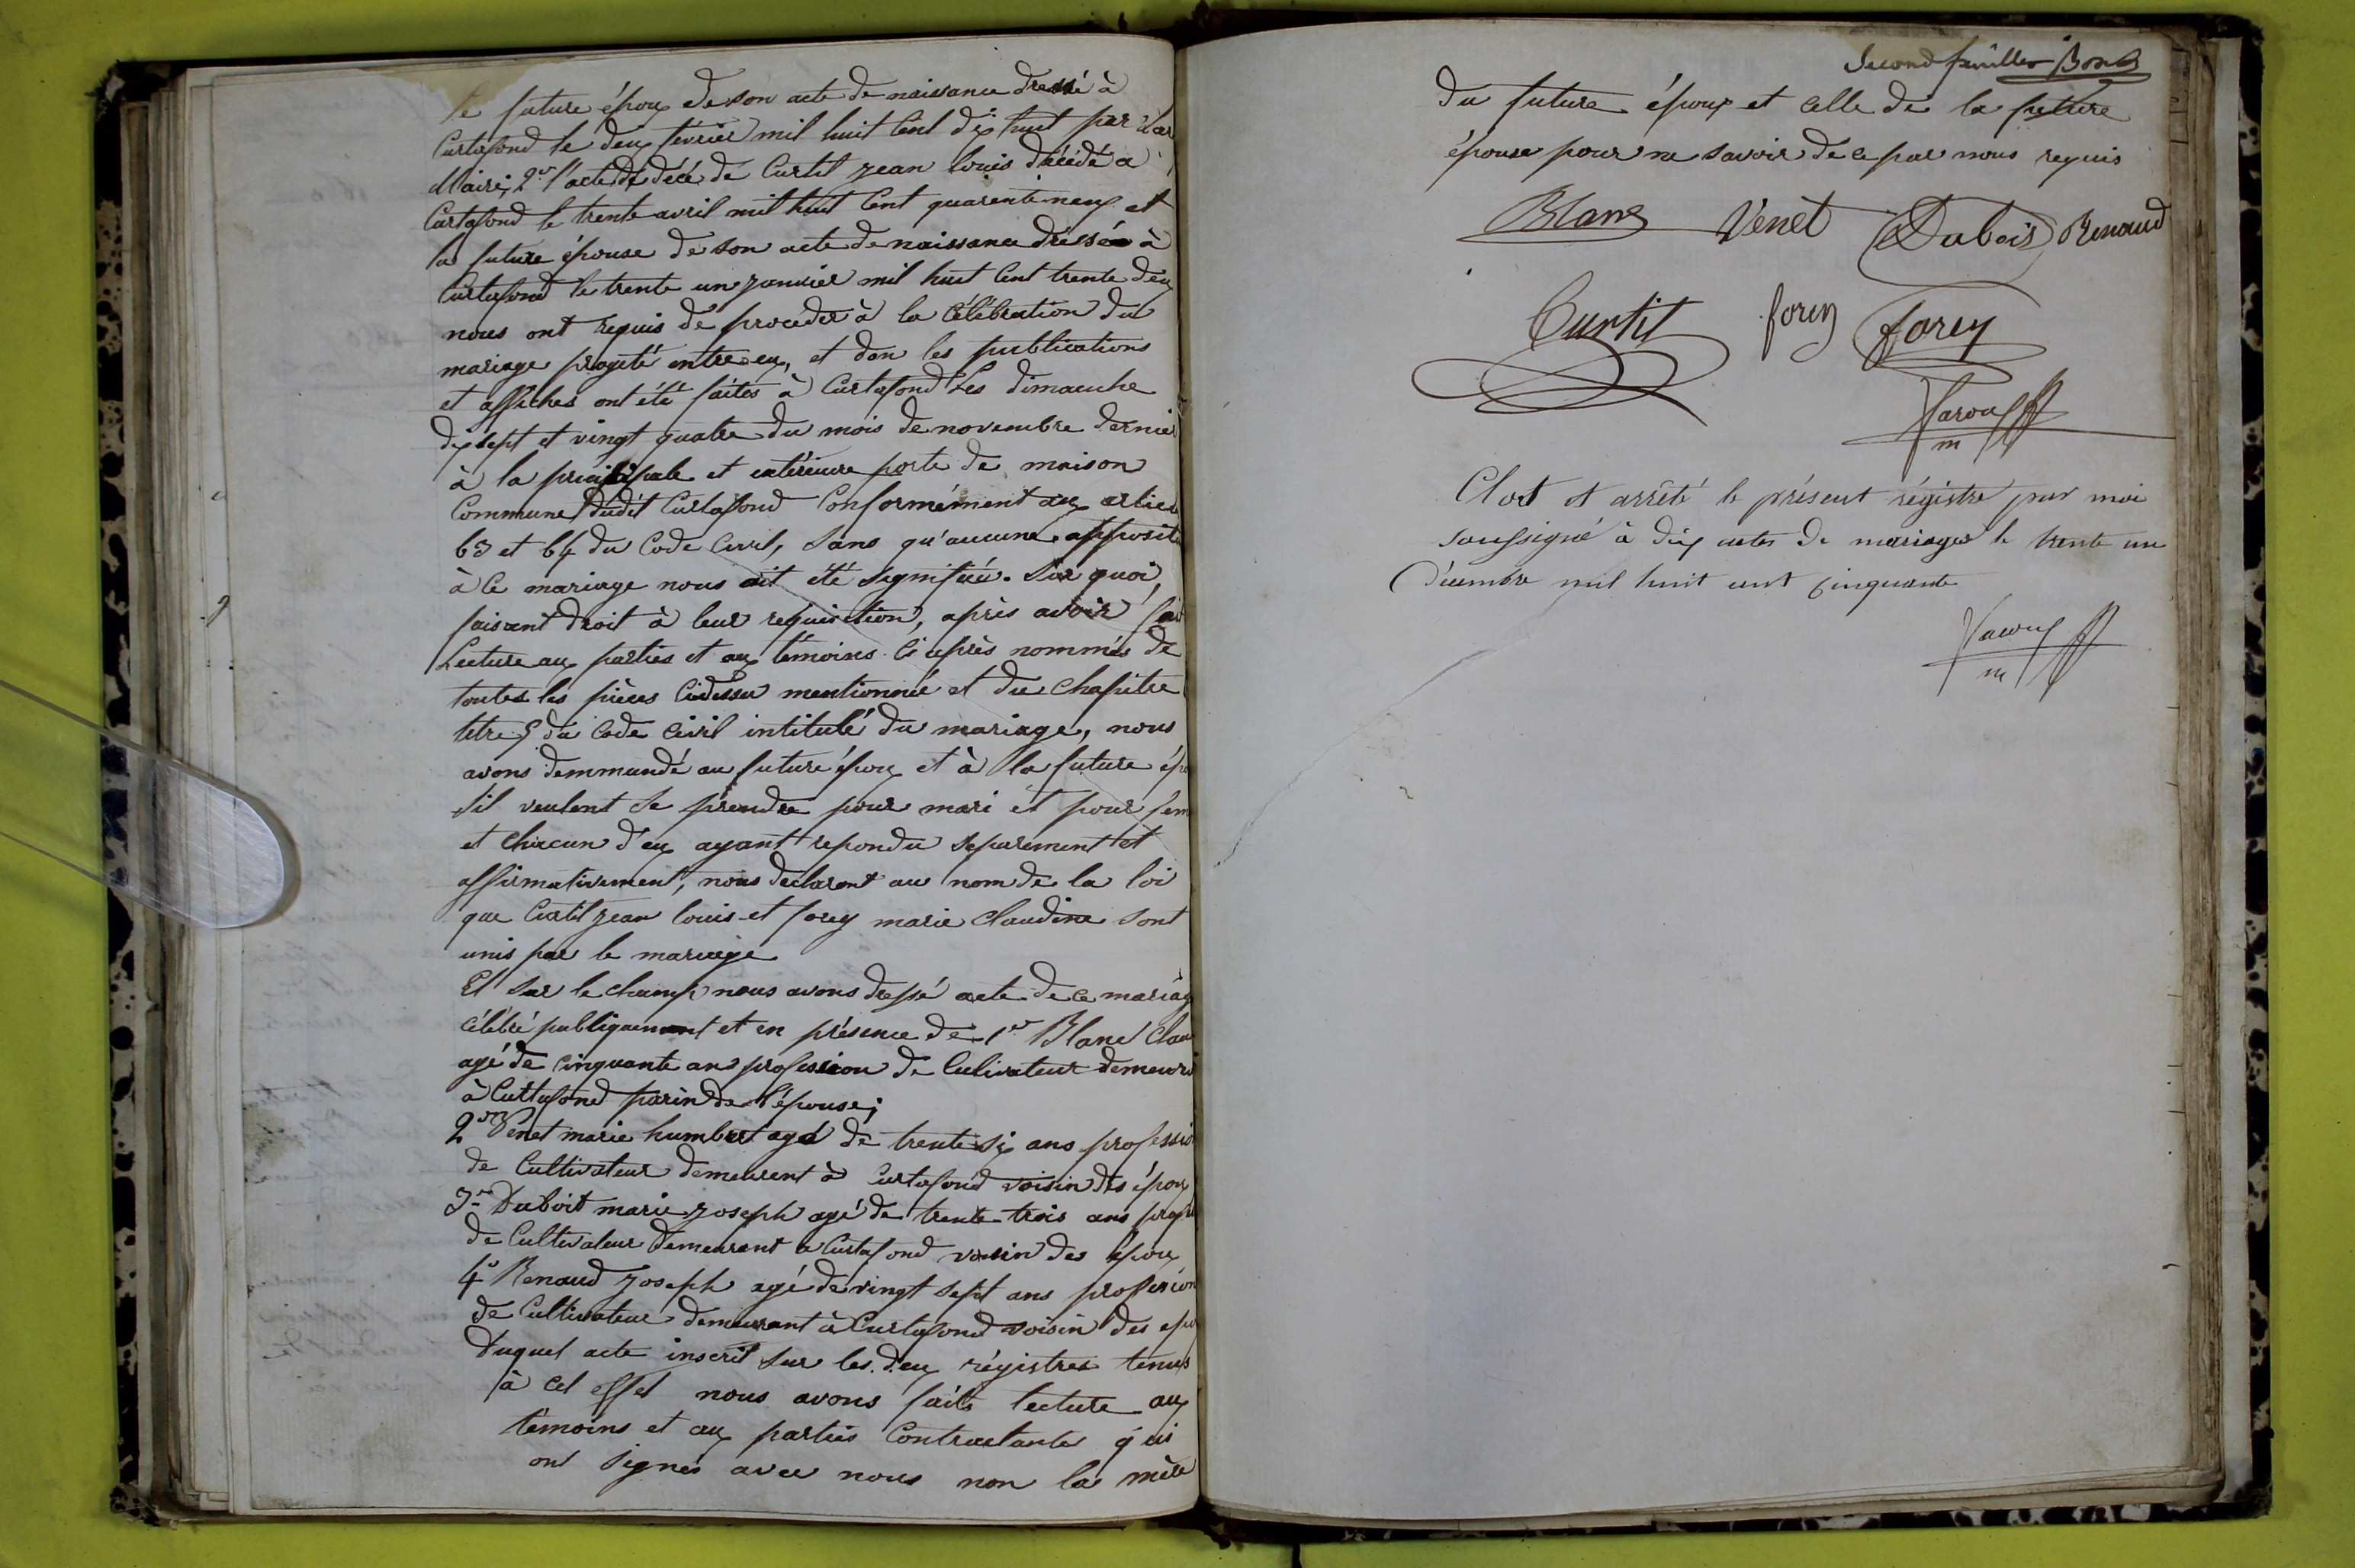 le future époux de son acte de naissance dressé à
Curtafond le deux février mil huit Cent dix huit par
Maire, 2o l'acte de décé de Curtil jean louis décédé a
Curtafond le trente avril mil huit Cent quarente neuf et
la future épouse de son acte de naissance dréssée à
Curtafond le trente un janvier mil huit Cent trente deux
nous ont requis de proceder à la Célébration du
mariage projeté entre eux, et don les publications
et affiches ont été faites à Curtafond Les dimanche
dix sept et vingt quatre du mois de novembre dernier
à la principale et extérieure porte de maison
Commune dudit Curtafond Conformément aux
63 et 64 du Code Civil, Sans qu'aucune opposit
à Ce mariage nous ait été signifiée. Sur quoi,
faisant droit à leur requisition, après avoir
Lecture aux parties et aux témoins Ci après nommés de
toutes les pièces Cidessu mentionnée et du Chapitre
titre 5 du Code Civil intitulé du mariage, nous
avons demmandé au future époux et à la future épo
S'il veulent se prendre pour mari et pour fem
et Chacun d'eux ayant repondu séparement et
affirmativement, nous declaront au nom de la loi
que Curtil jean louis et forey marie Claudine sont
unis par le mariage
Et Sur le Champ nous avons dressé acte de ce mariag
Célébré publiquement et en présence de 1er Blanc Clau
agé de Cinquante ans profession de Culivateur demeur
à Curtafond parin de l'épouse;
2em Venet marie humbert agé de trente six ans professio
de Cultivateur demeurent à Curtafond voisin des époux
3em Duboit marie joseph agé de trente trois ans profe
de Cultivateur demeurant à Curtafond voisin des époux
4o Renaud joseph agé de vingt sept ans profession
de Cultivateur demeurant à Curtafond voisin des epo
Duquel acte inscrit Sur les deux régistres tenus
à cet effet nous avons faite lecture aux
témoins et aux parties Contractante qui
ont signés avec nous non la mère
Second feuillet
du future époux et celle de la future
épouse pour ne savoir de ce par nous requis
Blanc Venet Dubois Renaud
Curtil forey forey
m
Clos et arrêté le présent régistre par moi
soussigné à dix actes de mariages le trente un
Décembre mil huit cent cinquante
m